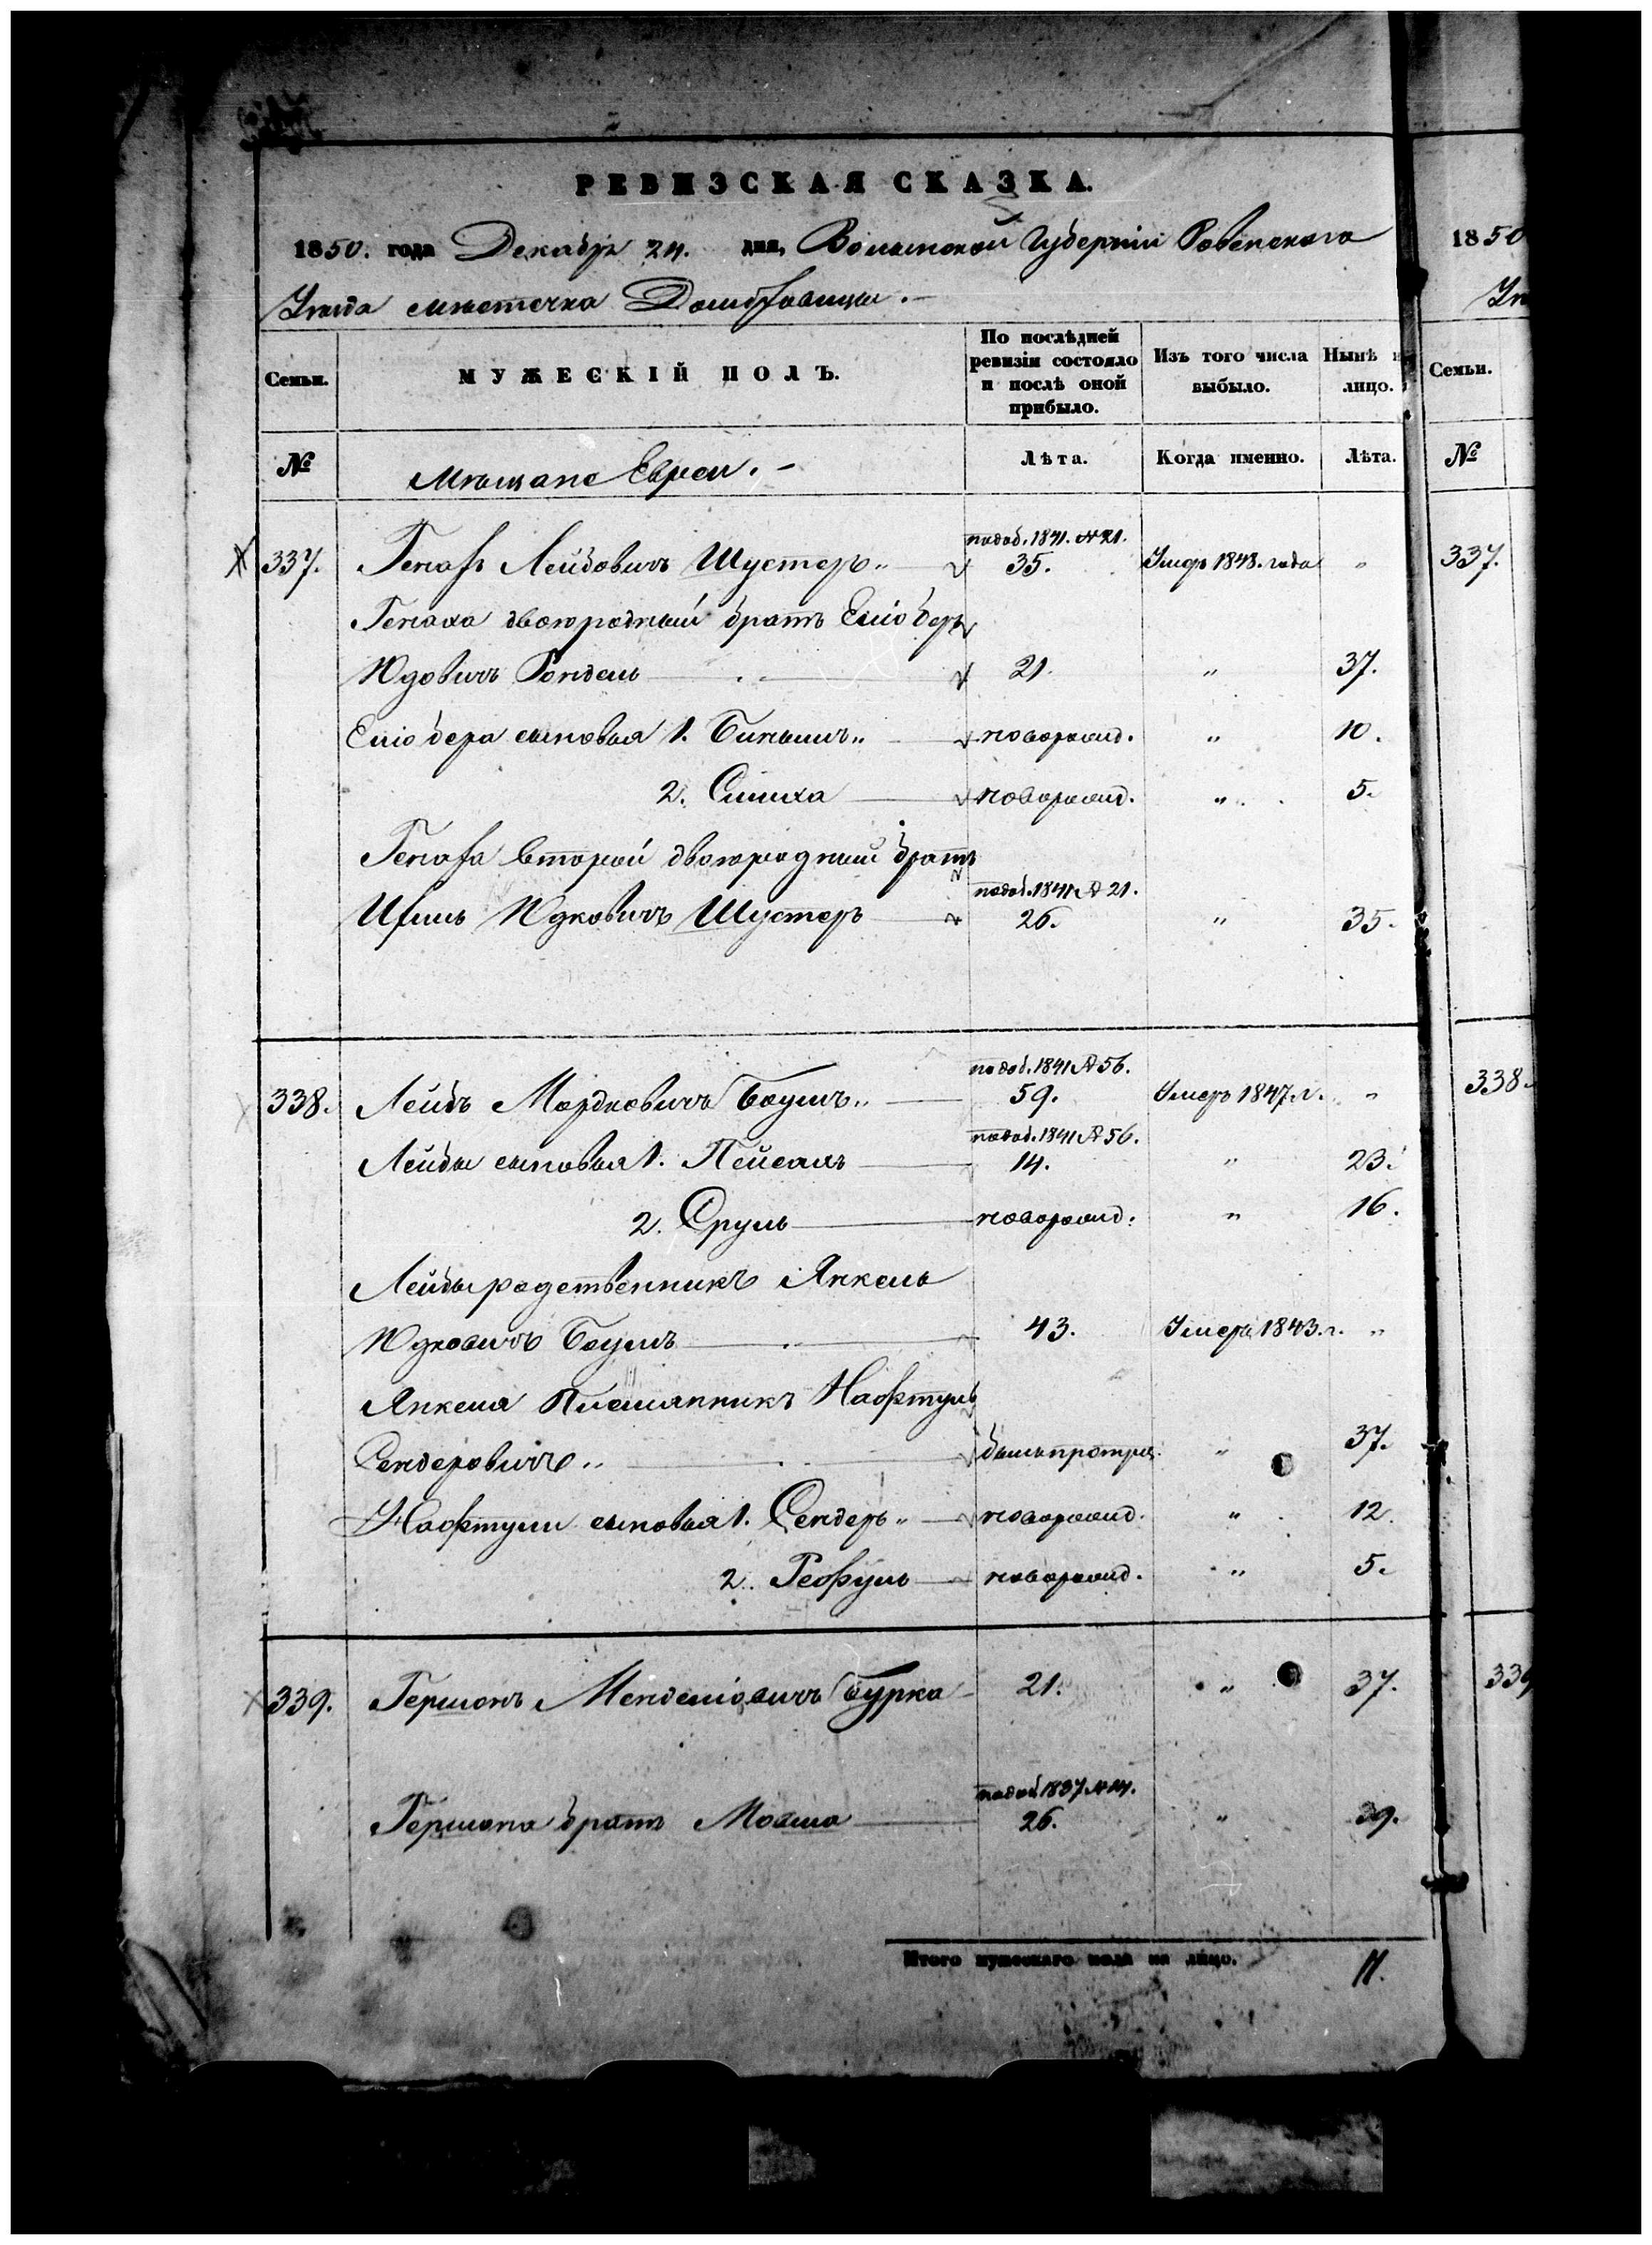 РЕВИЗСКАЯ СКАЗКА.
1850. года Декабря 24. дня, Волынской Губерніи Ровенскаго
Уезда местечка Домбровицы.
Семьи. МУЖЕСКІЙ ПОЛЪ. По послѣдней ревизіи состояло и послѣ оной прибыло. Изъ того числа выбыло. Нынѣ лицо.
№ Мещане Евреи. Лѣта. Когда именно. Лѣта.
по доб. 1841. №21.
337. Генахъ Лейбовичъ Шустеръ 35. Умеръ 1848. года "
Генаха двоюродный братъ Еліо беръ
Юдовичъ Гондель 21. " 37.
Еліо бера сыновья 1. Биньышъ новорожд. " 10.
2. Симха новорожд. " 5.
Генаха второй двоюродный братъ
по доб. 1841 № 21.
Ихиль Юдковичъ Шустеръ 26. " 35.
по доб. 1841 № 56.
338. Лейбъ Мордковичъ Боумъ 59. Умеръ 1847. г. "
по доб. 1841 № 56.
Лейбы сыновья 1. Пейсахъ 14. " 23.
2. Сруль новорожд. " 16.
Лейбы родственникъ Янкель
Юдковичъ Боумъ 43. Умеръ 1843. г. "
Янкеля Племянникъ Нафтуль
Сендеровичъ былъ пропущ. " 37.
Нафтули сыновья 1. Сендеръ новорожд. " 12.
2. Рефуль новорожд. " 5.
339. Гершонъ Менделіовичъ Бурко 21. " 37.
по доб. 1837 №
Гершона братъ Мовша 26. " 39.
Итого мужескаго пола на лицо. 11.
1850
Семьи.
№
337.
338.
339